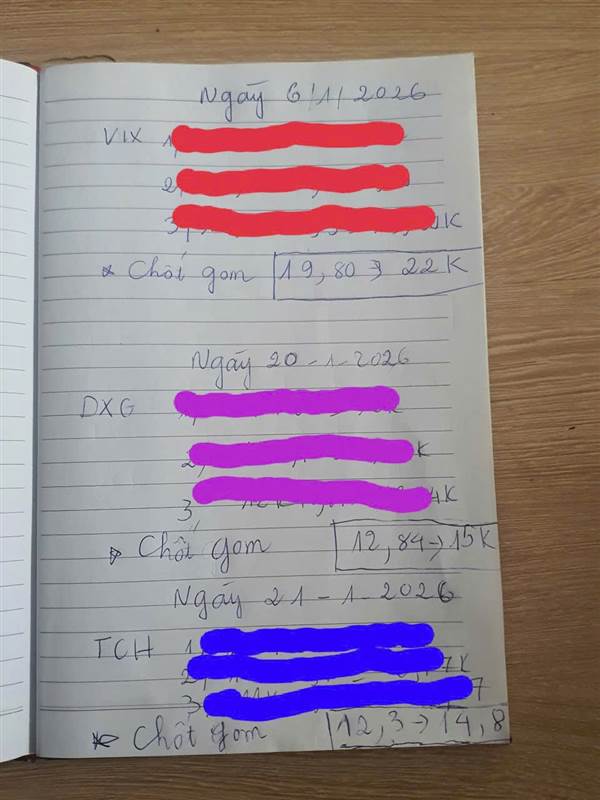 Ngày 6/1/2026
VIX 1,
2,
3, K
* Chốt gom 19,80 → 22K
Ngày 20-1-2026
DXG
2, K
3, 4K
* Chốt gom 12,84 → 15K
Ngày 21-1-2026
TCH 1,
2, 7K
3, 7
* Chốt gom 12,3 → 14,8